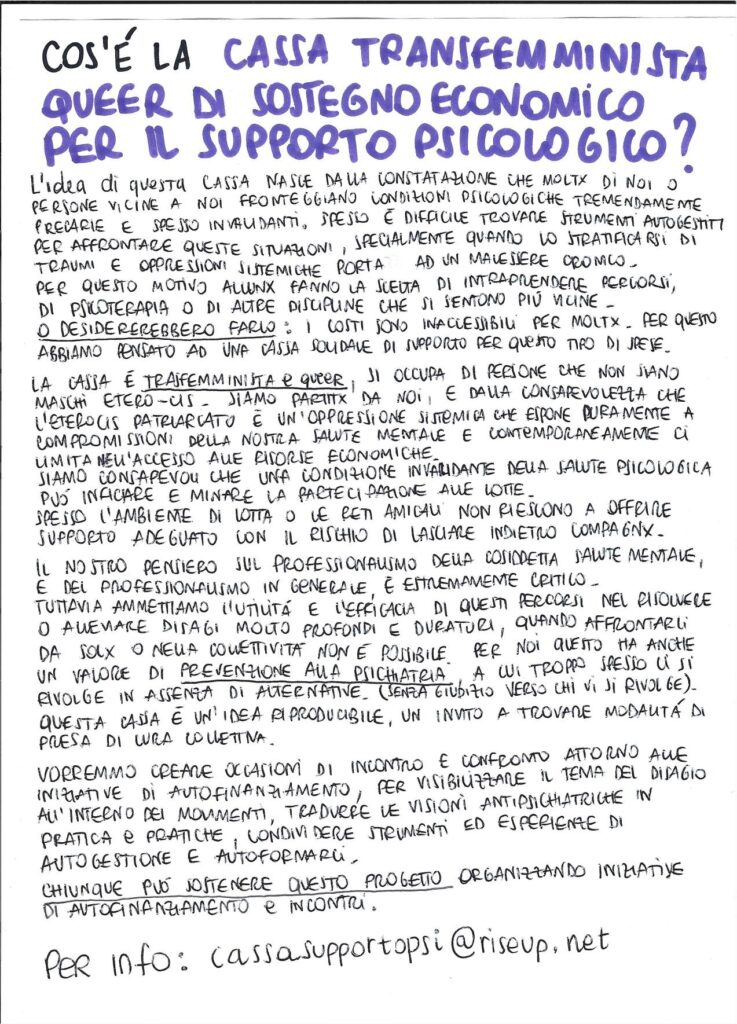 COS'É LA CASSA TRANSFEMMINISTA
QUEER DI SOSTEGNO ECONOMICO
PER IL SUPPORTO PSICOLOGICO?
L'idea di questa CASSA NASCE DALLA CONSTATAZIONE CHE MOLTX DI NOI O
PERSONE VICINE A NOI FRONTEGGIANO CONDIZIONI PSICOLOGICHE TREMENDAMENTE
PRECARIE E SPESSO INVALIDANTI. SPESSO É DIFFICILE TROVARE STRUMENTI AUTOGESTITI
PER AFFRONTARE QUESTE SITUAZIONI, SPECIALMENTE QUANDO LO STRATIFICARSI DI
TRAUMI E OPPRESSIONI SISTEMICHE PORTA AD UN MALESSERE CRONICO.
PER QUESTO MOTIVO ALCUNX FANNO LA SCELTA DI INTRAPRENDERE PERCORSI,
DI PSICOTERAPIA O DI ALTRE DISCIPLINE CHE SI SENTONO PIÚ VICINE.
O DESIDEREREBBERO FARLO: I COSTI SONO INACCESSIBILI PER MOLTX. PER QUESTO
ABBIAMO PENSATO AD UNA CASSA SOLIDALE DI SUPPORTO PER QUESTO TIPO DI SPESE.
LA CASSA É TRASFEMMINISTA e queer, SI OCCUPA DI PERSONE CHE NON SIANO
MASCHI ETERO-CIS. SIAMO PARTITX DA NOI, E DALLA CONSAPEVOLEZZA CHE
L'ETEROCIS PATRIARCATO É UN'OPPRESSIONE SISTEMICA CHE ESPONE DURAMENTE A
COMPROMISSIONI DELLA NOSTRA SALUTE MENTALE E CONTEMPORANEAMENTE CI
LIMITA NELL'ACCESSO ALLE RISORSE ECONOMICHE.
SIAMO CONSAPEVOLI CHE UNA CONDIZIONE INVALIDANTE DELLA SALUTE PSICOLOGICA
PUÓ INFICIARE E MINARE LA PARTECIPAZIONE ALLE LOTTE.
SPESSO L'AMBIENTE DI LOTTA O LE RETI AMICALI NON RIESCONO A OFFRIRE
SUPPORTO ADEGUATO CON IL RISCHIO DI LASCIARE INDIETRO COMPAGNX.
IL NOSTRO PENSIERO SUL PROFESSIONALISMO DELLA COSIDDETTA SALUTE MENTALE,
E DEL PROFESSIONALISMO IN GENERALE, É ESTREMAMENTE CRITICO.
TUTTAVIA AMMETTIAMO L'UTILITÁ E L'EFFICACIA DI QUESTI PERCORSI NEL RISOLVERE
O ALLEVIARE DISAGI MOLTO PROFONDI E DURATURI, QUANDO AFFRONTARLI
DA SOLX O NELLA COLLETTIVITÁ NON É POSSIBILE. PER NOI QUESTO HA ANCHE
UN VALORE DI PREVENZIONE ALLA PSICHIATRIA, A CUI TROPPO SPESSO CI SI
RIVOLGE IN ASSENZA DI ALTERNATIVE. (SENZA GIUDIZIO VERSO CHI VI SI RIVOLGE).
QUESTA CASSA É UN'IDEA RIPRODUCIBILE, UN INVITO A TROVARE MODALITÁ DI
PRESA DI CURA COLLETTIVA.
VORREMMO CREARE OCCASIONI DI INCONTRO E CONFRONTO ATTORNO ALLE
INIZIATIVE DI AUTOFINANZIAMENTO, PER VISIBILIZZARE IL TEMA DEL DISAGIO
ALL'INTERNO DEI MOVIMENTI, TRADURRE LE VISIONI ANTIPSICHIATRICHE IN
PRATICA e PRATICHE, CONDIVIDERE STRUMENTI ED ESPERIENZE DI
AUTOGESTIONE E AUTOFORMARCI.
CHIUNQUE PUÓ SOSTENERE QUESTO PROGETTO ORGANIZZANDO INIZIATIVE
DI AUTOFINANZIAMENTO e INCONTRI.
PER INFO: cassasupportopsi@riseup.net